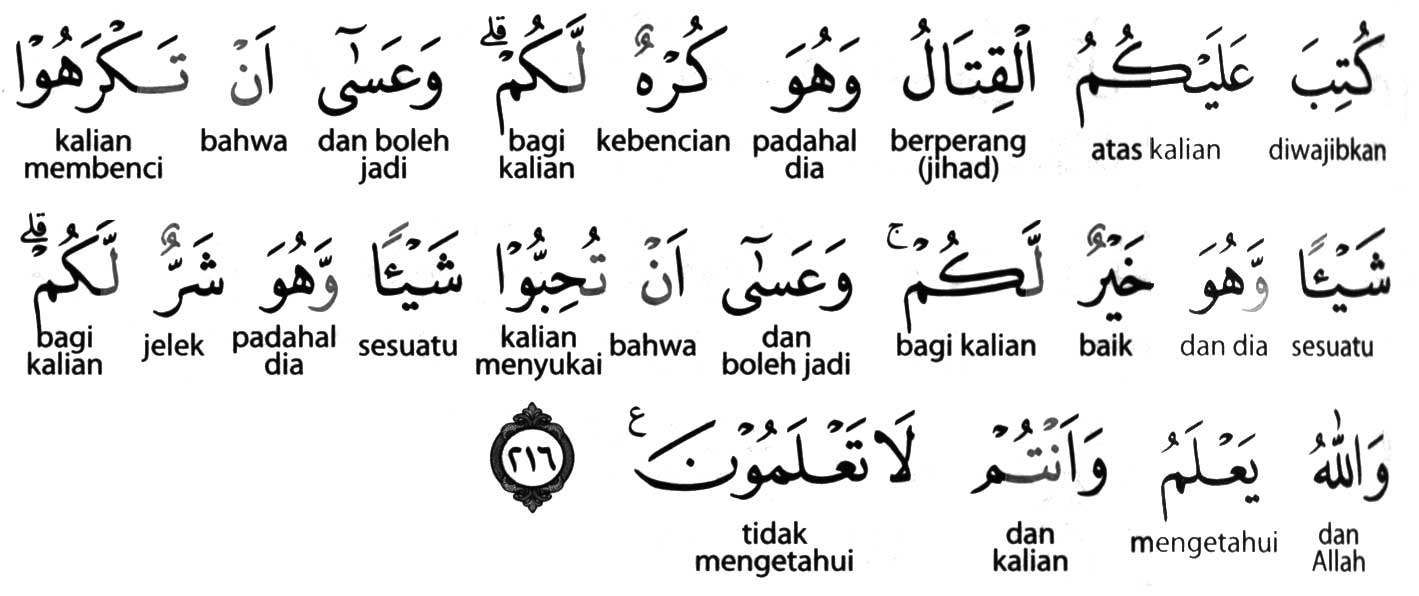 كُتِبَ عَلَيْكُمُ الْقِتَالُ وَهُوَ كُرْهٌ لَّكُمْ ۗ وَعَسٰٓى اَنْ تَكْرَهُوْا
diwajibkan atas kalian berperang (jihad) padahal dia kebencian bagi kalian dan boleh jadi bahwa kalian membenci
شَيْـًٔا وَّهُوَ خَيْرٌ لَّكُمْ ۚ وَعَسٰٓى اَنْ تُحِبُّوْا شَيْـًٔا وَّهُوَ شَرٌّ لَّكُمْ ۗ
sesuatu dan dia baik bagi kalian dan boleh jadi bahwa kalian menyukai sesuatu padahal dia jelek bagi kalian
وَاللّٰهُ يَعْلَمُ وَاَنْتُمْ لَا تَعْلَمُوْنَ ع ٢١٦
dan Allah mengetahui dan kalian tidak mengetahui